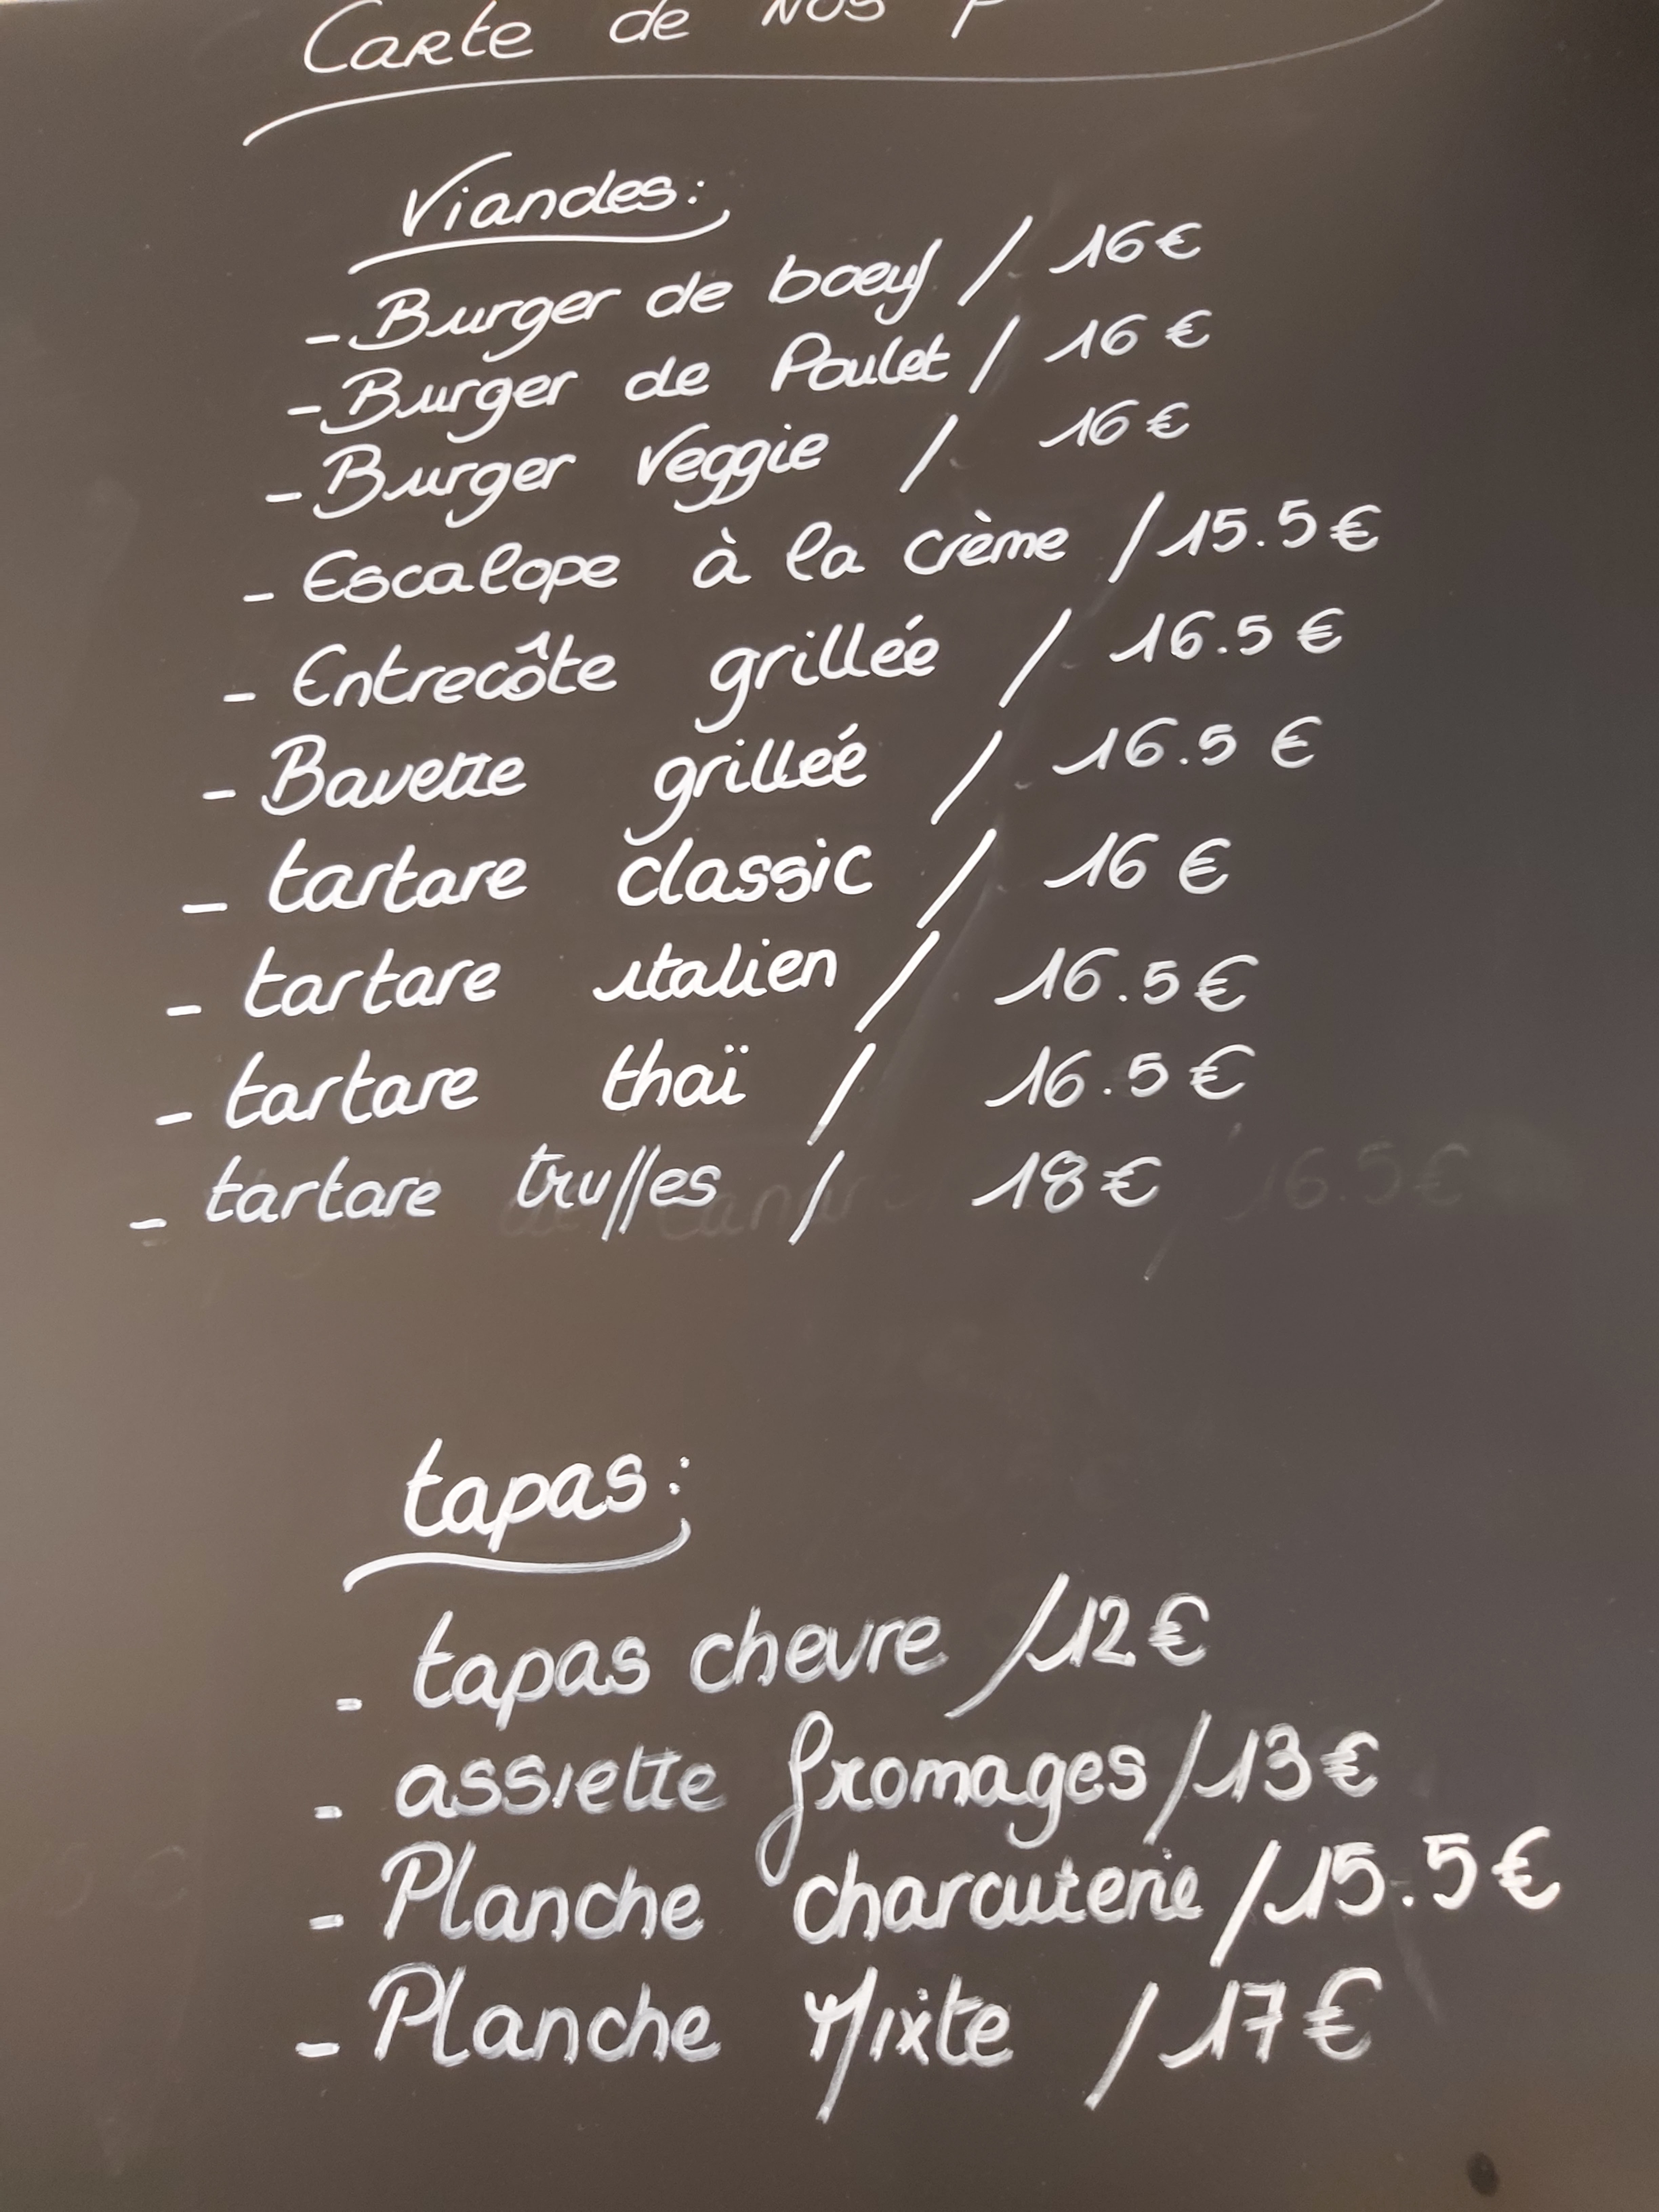 Carte de Nos
Viandes:
- Burger de boeuf / 16€
- Burger de Poulet / 16€
- Burger Veggie / 16€
- Escalope à la crème / 15.5€
- Entrecôte grillée / 16.5€
- Bavette grilleé / 16.5€
- tartare classic / 16€
- tartare italien / 16.5€
- tartare thaï / 16.5€
- tartare truffes / 18€
16.5€
tapas:
- tapas chevre / 12€
- assiette fromages / 13€
- Planche charcuterie / 15.5€
- Planche Mixte / 17€